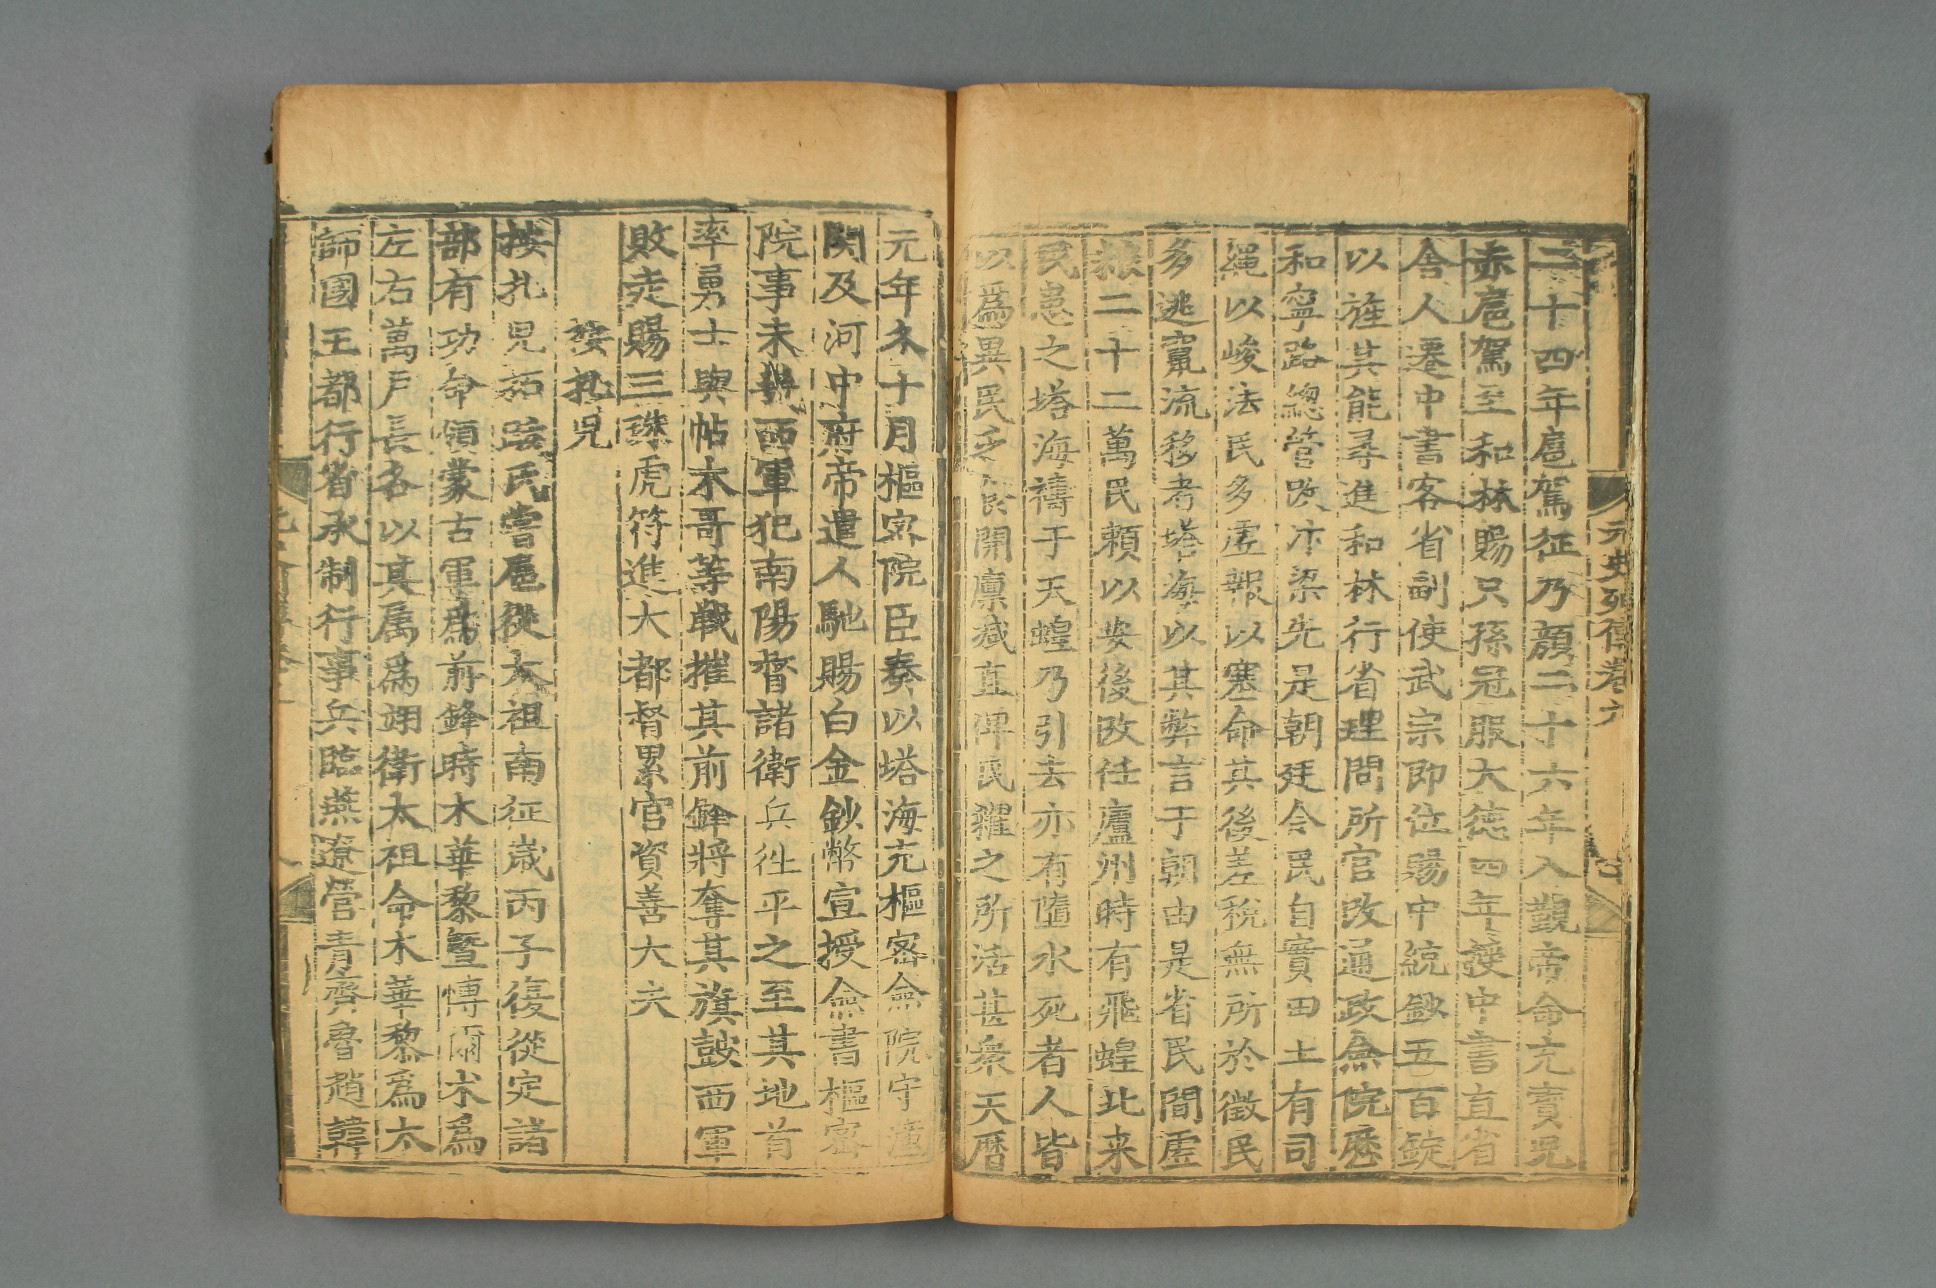 元史列傳卷六
二十四年扈駕征乃顔二十六年入覲帝命充寳児
赤扈駕至和林賜只孫冠服大徳四年授中書直省
舎人遷中書客省副使武宗即位賜中統鈔五百錠
以旌其能尋進和林行省理問所官改通政僉院歷
和寧路總管改汴梁先是朝廷令民自實田土有司
繩以峻法民多虚報以塞命其後差税無所於徴民
多逃竄流移者塔海以其弊言于朝由是省民間虚
粮二十二萬民頼以安後改任廬州時有飛蝗北来
民患之塔海禱于天蝗乃引去亦有墮水死者人皆
以爲異民乏食開廪减直俾民糴之所活甚衆天暦
元年冬十月樞密院臣奏以塔海充樞密僉院守潼
関及河中府帝遣人馳賜白金鈔幣宣授僉書樞密
院事未幾西軍犯南陽督諸衛兵徃平之至其地首
率勇士與帖木哥等戰摧其前鋒將奪其旗鼓西軍
敗走賜三珠虎符進大都督累官資善大夫
按扎児
按扎児拓跋氏嘗扈從太祖南征歳丙子復從定諸
部有功命領蒙古軍爲前鋒時木華黎曁愽爾朮爲
左右萬戸長各以其属爲翊衛太祖命木華黎爲太
師國王都行省承制行事兵臨燕遼營青齊魯趙韓